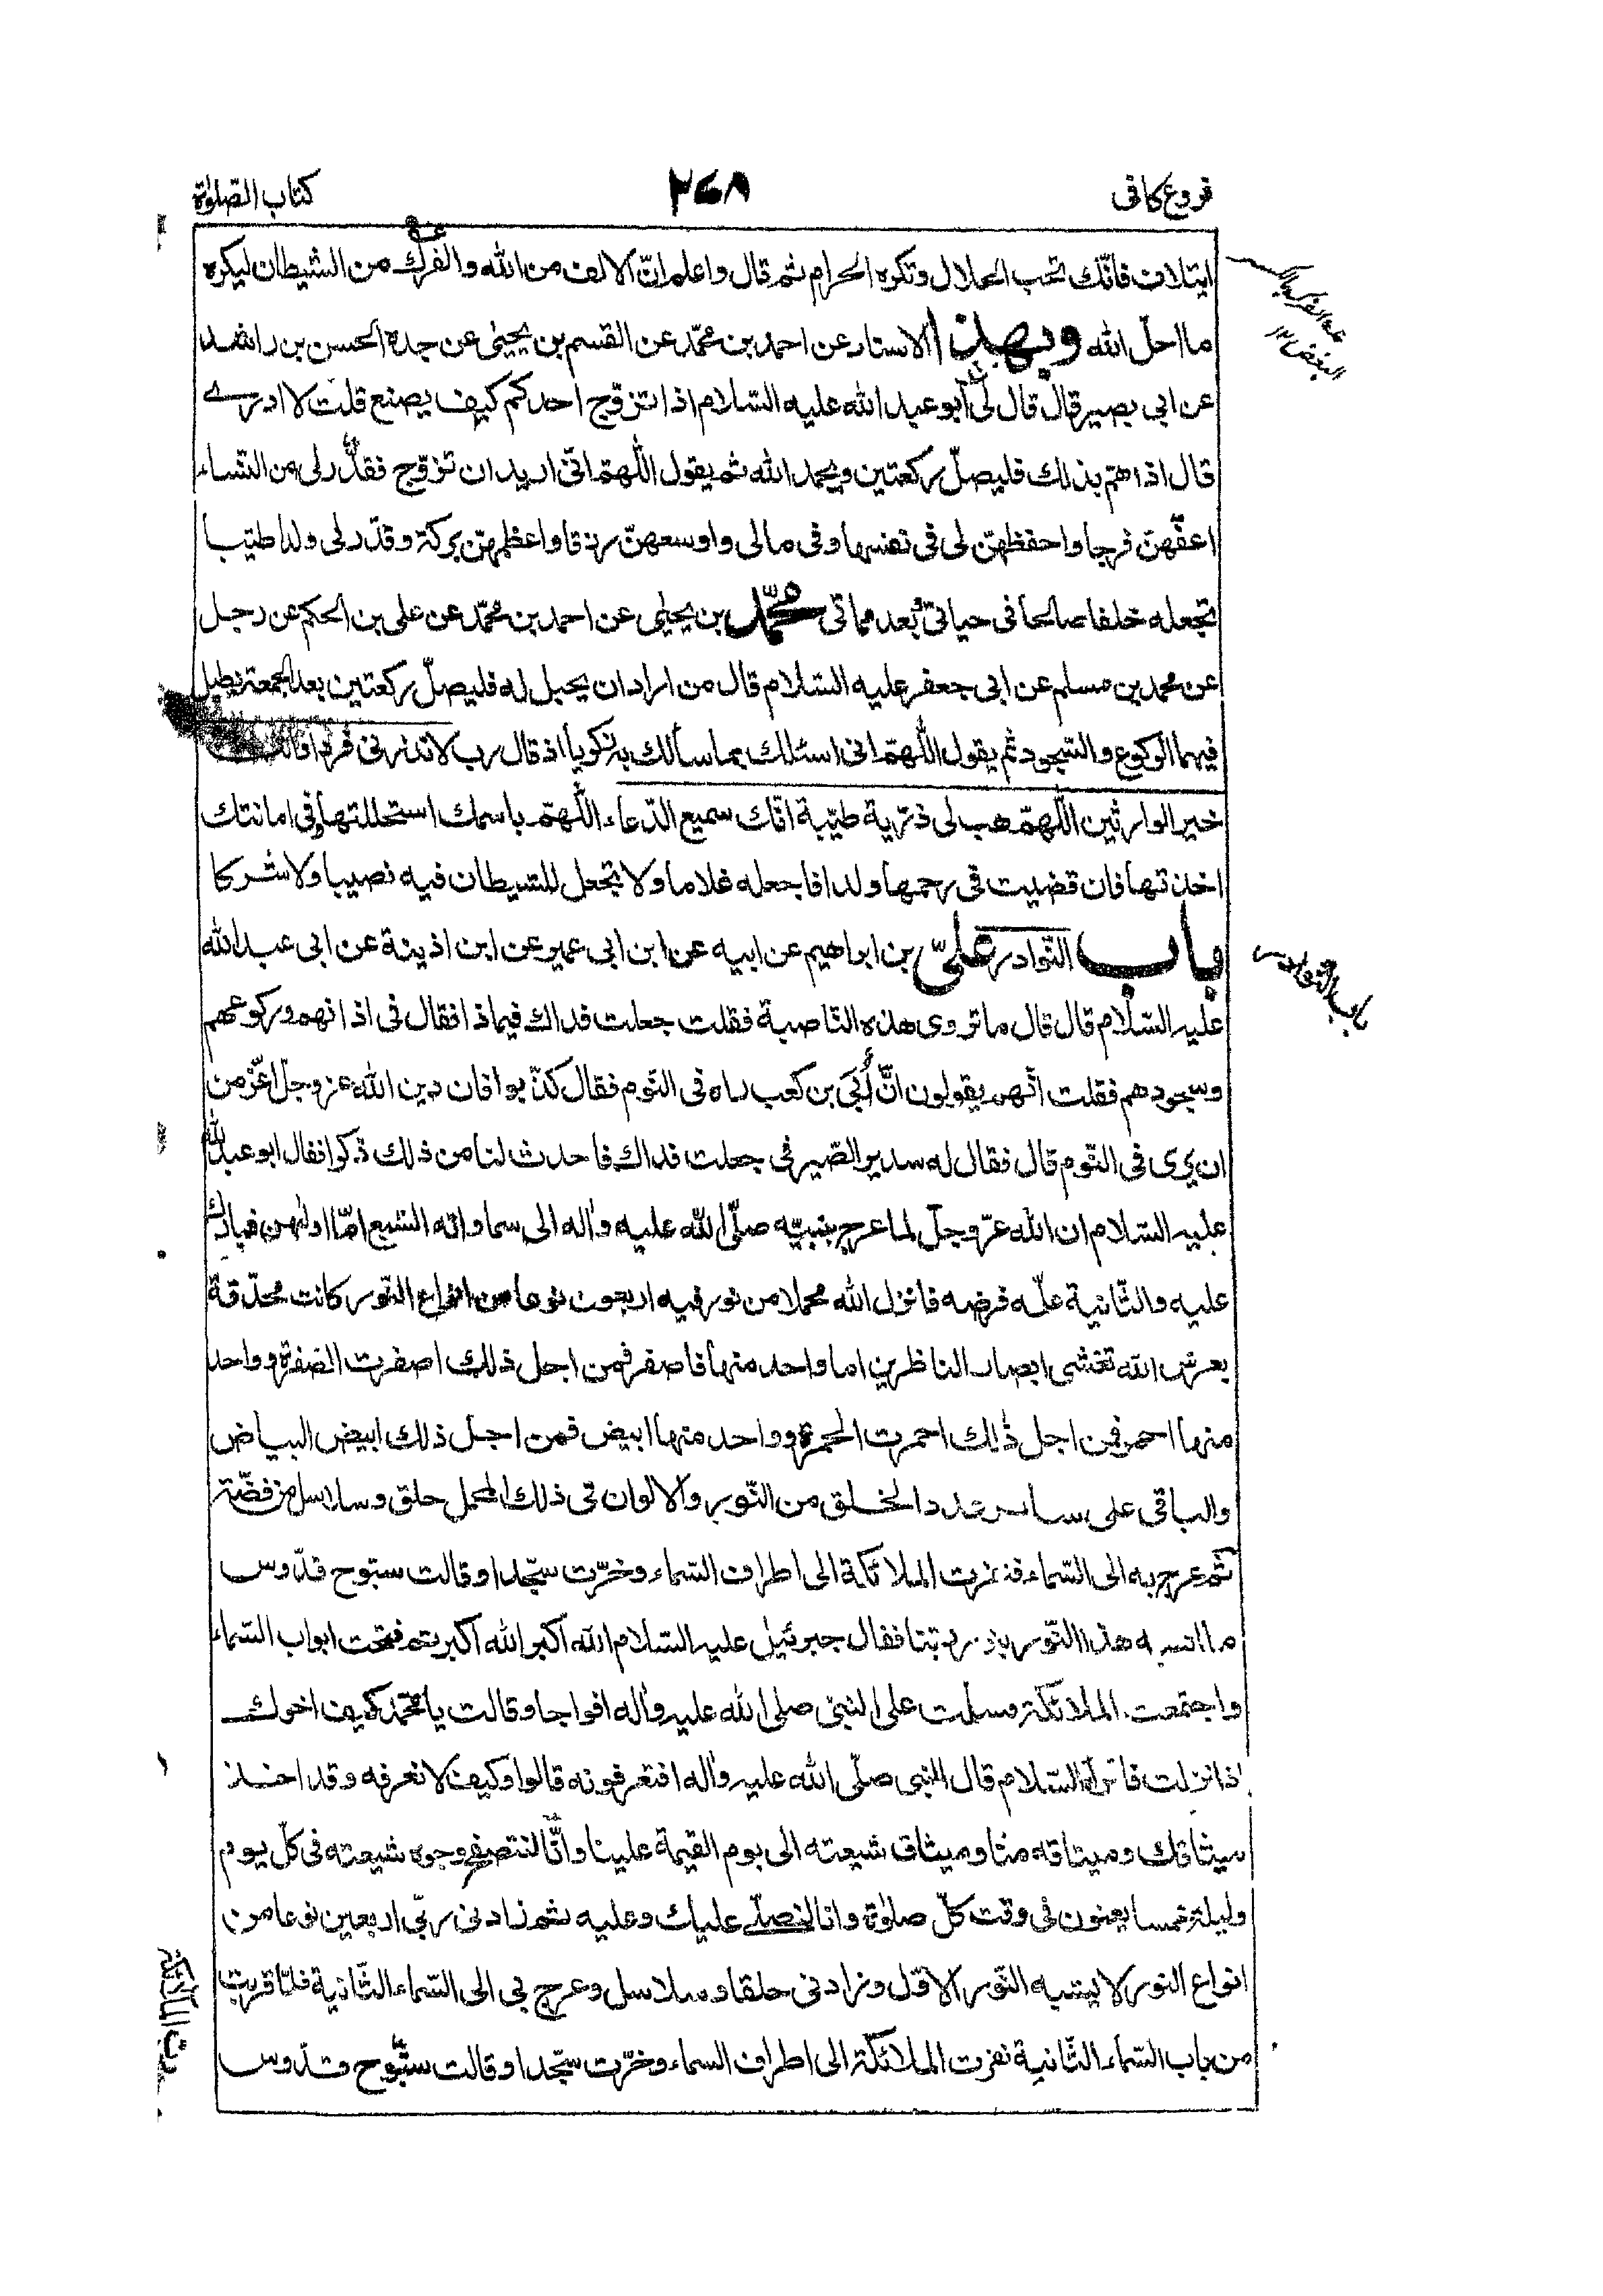 فروع كافى
٢٦٨
كتاب الصّلوٰة
ايتلاف فانّك تحب الحلال وتكره الحرام ثم قال واعلم انّ الالف من الله والفرك من الشيطان ليكره
ما احلّ الله وبهذا الاسناد عن احمد بن محمّد عن القسم بن يحيىٰ عن جده الحسن بن راشد
عن ابى بصير قال قال لى ابو عبد الله عليه السّلام اذا تزوّج احدكم كيف يصنع قلت لا ادرے
قال اذا هم بذلك فليصلّ ركعتين ويحمد الله ثم يقول اللّهمّ انّى اريد ان تزوّج فقدّر لى من النّساء
اعفّهنّ فرجا واحفظهنّ لى فى نفسها وفى مالى واوسعهنّ رزقا واعظمهنّ بركة وقدّر لى ولدا طيّبا
تجعله خلفا صالحا فى حياتى وبعد مماتى محمّد بن يحيىٰ عن احمد بن محمّد عن على بن الحكم عن رجل
عن محمد بن مسلم عن ابى جعفر عليه السّلام قال من اراد ان يحبل له فليصلّ ركعتين بعد الجمعة يطيل
فيهما الركوع والسّجود ثم يقول اللّهمّ انى اسئلك بما سألك به زكريا اذ قال رب لا تذرنى فردا وانت
خير الوارثين اللّهمّ هب لى ذرّية طيّبة انّك سميع الدّعاء اللّهمّ باسمك استحللتها وفى امانتك
اخذتها فان قضيت فى رحمها ولدا فاجعله غلاما ولا تجعل للشيطان فيه نصيبا ولا شركا
باب النّوادر علىّ بن ابراهيم عن ابيه عن ابن ابى عمير عن ابن اذينة عن ابى عبد الله
عليه السّلام قال قال ما تروى هذه النّاصبة فقلت جعلت فداك فيما ذا فقال فى اذانهم وركوعهم
وسجودهم فقلت انّهم يقولون انّ أُبَىّ بن كعب راه فى النّوم فقال كذبوا فان دين الله عز وجلّ اعزّ من
ان يرى فى النّوم قال فقال له سدير الصّيرفى جعلت فداك فاحدث لنا من ذلك ذكرا فقال ابو عبد الله
عليه السّلام ان الله عزّ وجلّ لما عرج بنبيّه صلّى الله عليه واٰله الى سماواته السّبع امّا اولٰهن فبارك
عليه والثّانية علّمه فرضه فانزل الله محملا من نور فيه اربعون نوعا من انواع النّور كانت محدّقة
بعرش الله تغشى ابصار الناظرين اما واحد منها فاصفر فمن اجل ذلك اصفرت الصّفرة وواحد
منها احمر فمن اجل ذٰلك احمرت الحمرة وواحد منها ابيض فمن اجل ذلك ابيض البياض
والباقى على ساير عدد الخلق من النّور والالوان فى ذلك المحمل حلق وسلاسل من فضّة
ثم عرج به الى السّماء فنفرت الملائكة الى اطراف السّماء وخرّت سجّدا وقالت سبّوح قدّوس
ما اشبه هذا النّور بنور ربّنا فقال جبرئيل عليه السّلام الله اكبر الله اكبر ثم فتحت ابواب السّماء
واجتمعت الملائكة وسلّمت على النبىّ صلى الله عليه واٰله افواجا وقالت يا محمّد كيف اخوك
اذا نزلت فاقرأه السّلام قال النبى صلّى الله عليه واٰله افتعرفونه قالوا وكيف لا نعرفه وقد اخذ
ميثاقك وميثاقه منّا وميثاق شيعته الى يوم القيمة علينا وانّا لنتصفح وجوه شيعته فى كلّ يوم
وليلة خمسا يعنون فى وقت كلّ صلوٰة وانا لنصلّے عليك وعليه ثم زادنى ربّى اربعين نوعا من
انواع النور لا يشبه النّور الاوّل وزادنى حلقا وسلاسل وعرج بى الى السّماء الثّانية فلمّا قربت
من باب السّماء الثّانية نفرت الملائكة الى اطراف السماء وخرّت سجّدا وقالت سبّوح قدّوس
البغض ١٢
باب النّوادر